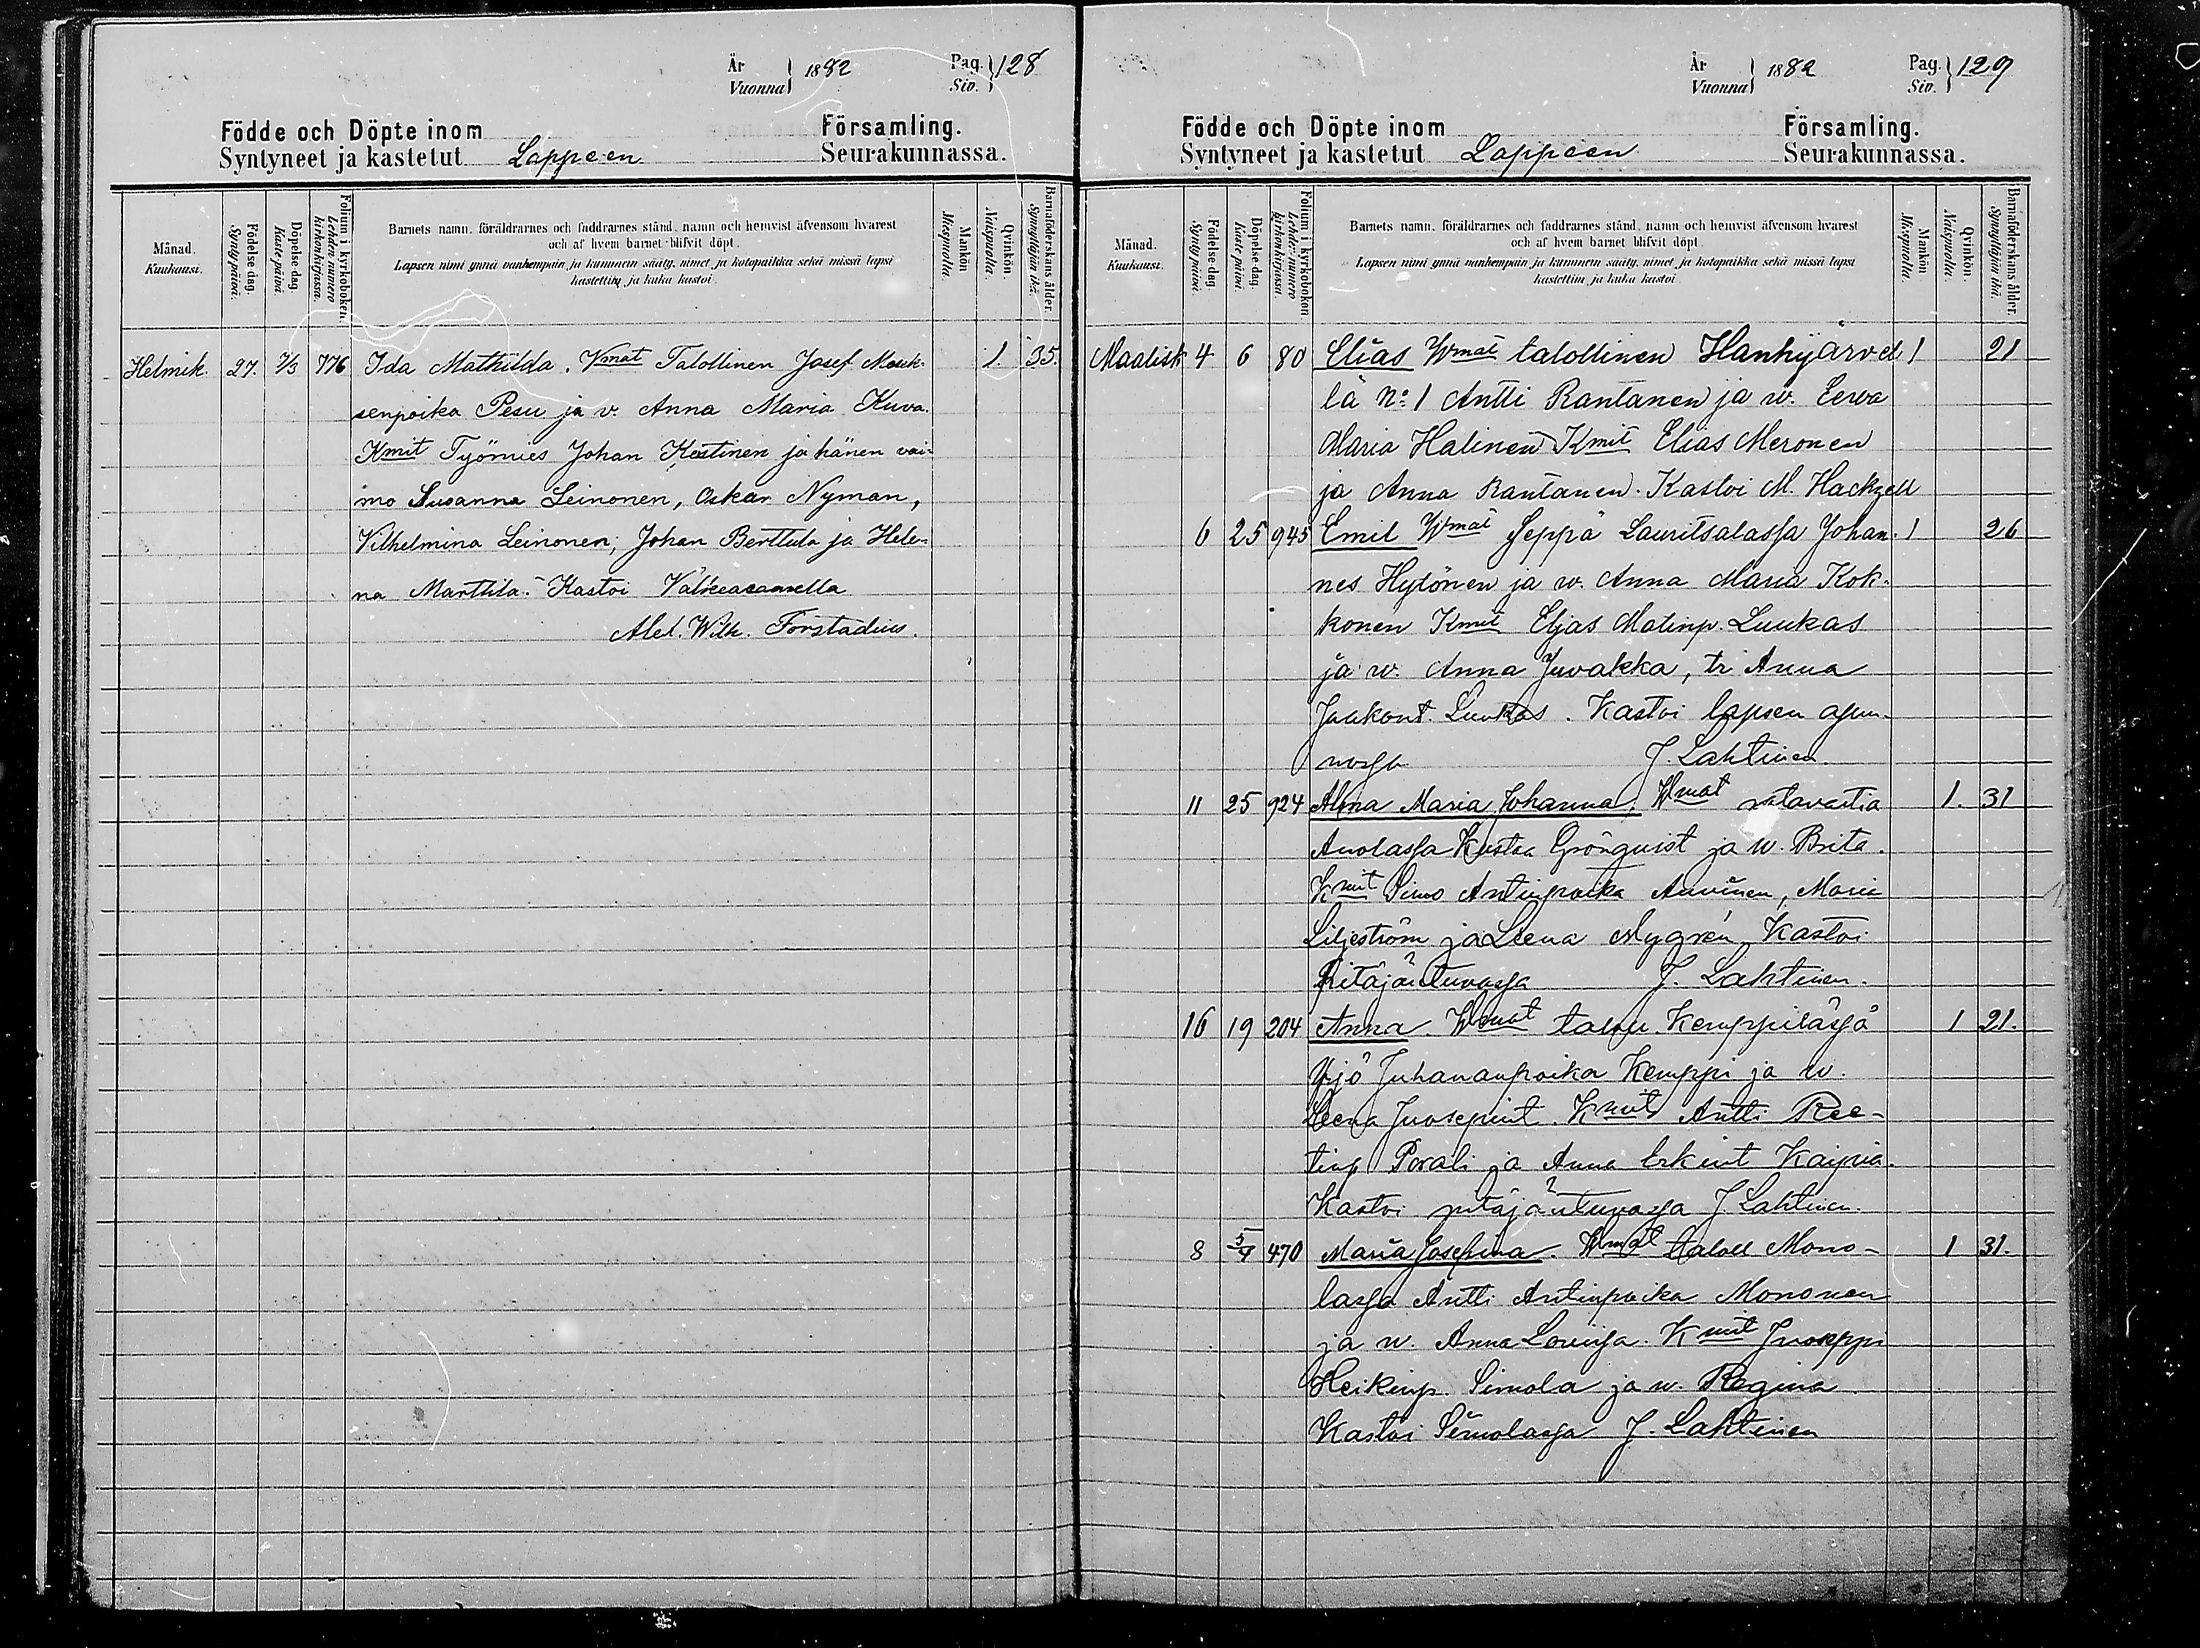 År
Vuonna 1882
Pag.
Siv. 128
Födde och Döpte inom Församling.
Syntyneet ja kastetut Lappeen Seurakunnassa.
Månad. Kuukausi.
Födelse-dag. Synty päivä.
Döpelse-dag. Kaste päivä.
Folium i kyrkoboken. Lehden numero kirkonkirjassa.
Barnets namn, föräldrarnes och faddrarnes stånd, namn och hemvist äfvensom hvarest
och af hvem barnet blifvit döpt.
Lapsen nimi ynnä vanhempain ja kummein sääty, nimet ja kotopaikka sekä missä lapsi
kastettiin ja kuka kastoi.
Mankön Miespuolta.
Qvinkön. Naispuolta.
Barnaföderskans ålder. Synnyttäjän ikä.
Helmik. 27. 7/3 776 Ida Mathilda. Vmat Talollinen Josef Mouk- 1. 35.
senpoika Pesu ja v. Anna Maria Kuva.
Kmit Työmies Johan Kostinen ja hänen vai-
mo Susanna Leinonen, Oskar Nyman,
Vilhelmina Leinonen, Johan Berttula ja Hele-
na Marttila. Kastoi Valkeasaarella
Alel. Wilh. Forstadius.
År
Vuonna 1882
Pag.
Siv. 129
Födde och Döpte inom Församling.
Syntyneet ja kastetut Lappeen Seurakunnassa.
Månad. Kuukausi.
Födelse-dag. Synty päivä.
Döpelse-dag. Kaste päivä.
Folium i kyrkoboken. Lehden numero kirkonkirjassa.
Barnets namn, föräldrarnes och faddrarnes stånd, namn och hemvist äfvensom hvarest
och af hvem barnet blifvit döpt.
Lapsen nimi ynnä vanhempain ja kummein sääty, nimet ja kotopaikka sekä missä lapsi
kastettiin ja kuka kastoi
Mankön Miespuolta.
Qvinkön. Naispuolta.
Barnaföderskans ålder. Synnyttäjän ikä.
Maalisk 4 6 80 Elias Wmat talollinen Hanhijärvel 1 21
lä No: 1 Antti Rantanen ja w. Eewa
Maria Halinen Kmit Elias Meronen
ja Anna Rantanen. Kastoi M. Hackzell
6 25 945 Emil Wmat Seppä Lauritsalassa Johan- 1 26
nes Hytönen ja w. Anna Maria Kok-
konen Kmit Eljas Matinp. Luukas
ja w. Anna Juvakka, tr Anna
Jaakont. Luukas. Kastoi lapsen
J. Lahtinen.
11 25 924 Alma Maria Johanna. Wmat ratavartia 1. 31
Kustaa Grönquist ja w. Brita.
Kmit Simo Antinpoika Auvinen, Maria
Liljeström ja Leena Nygrén Kastoi
Pitäjäntuvassa J. Lahtinen.
16 19 204 Anna. Wmat Kemppilässä 1 21.
Yrjö Juhananpoika Kemppi ja w.
Leena Juosepint. Kmit Antti Ree-
tinp Porali ja Anna Erkint
Kastoi pitäjäntuvassa J. Lahtinen.
8 5/4 470 Maria Josefina. Wmat taloll Mono- 1 31.
lassa Antti Antinpoika Mononen
ja w. Anna Lovisa. Kmit Juoseppi
Heikinp. Simola ja w. Regina
Kastoi Simolassa J. Lahtinen